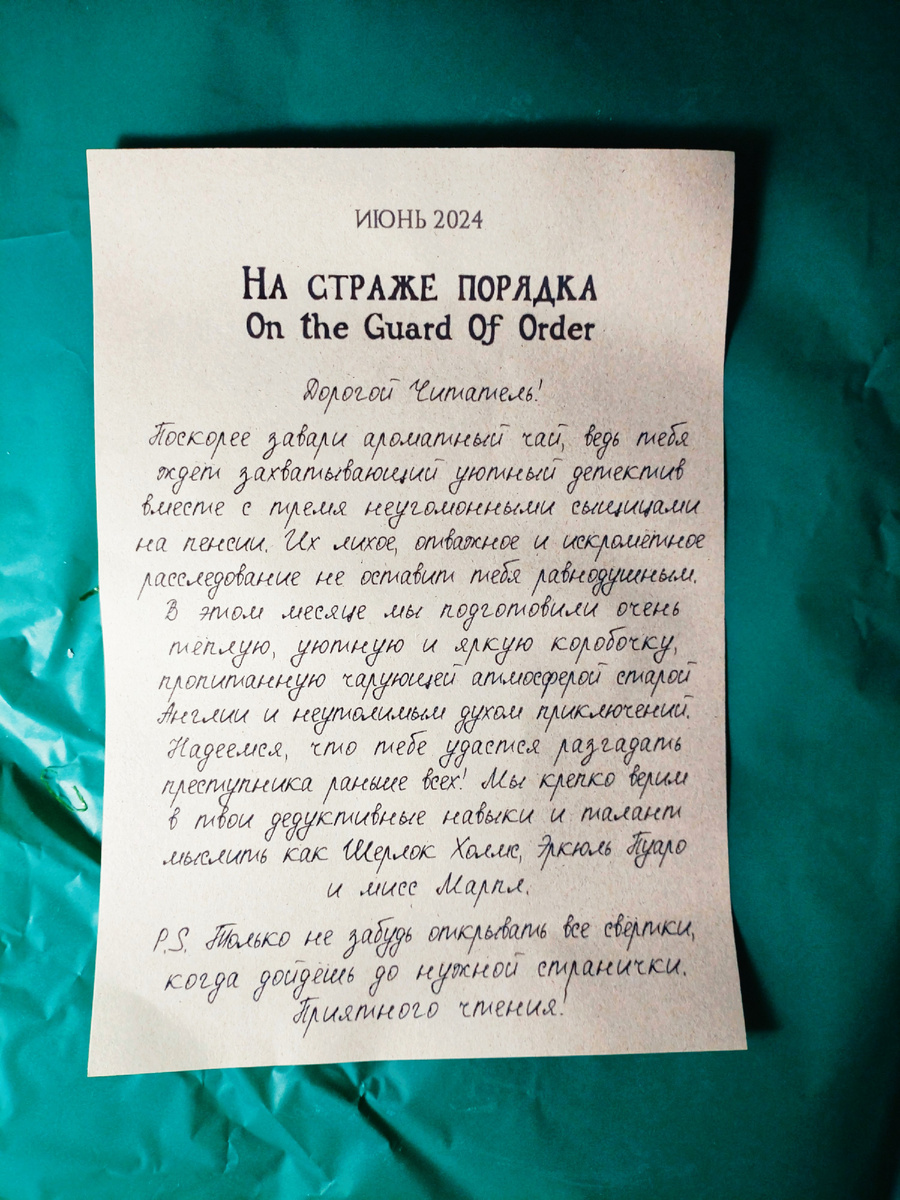 ИЮНЬ 2024
На страже порядка
On the Guard Of Order
Дорогой Читатель!
Поскорее завари ароматный чай, ведь тебя
ждёт захватывающий уютный детектив
вместе с тремя неугомонными сыщицами
на пенсии. Их лихое, отважное и искромётное
расследование не оставит тебя равнодушным.
В этом месяце мы подготовили очень
тёплую, уютную и яркую коробочку,
пропитанную чарующей атмосферой старой
Англии и неутолимым духом приключений.
Надеемся, что тебе удастся разгадать
преступника раньше всех! Мы крепко верим
в твои дедуктивные навыки и талант
мыслить как Шерлок Холмс, Эркюль Пуаро
и мисс Марпл.
P.S. Только не забудь открывать все свёртки,
когда дойдёшь до нужной странички.
Приятного чтения!